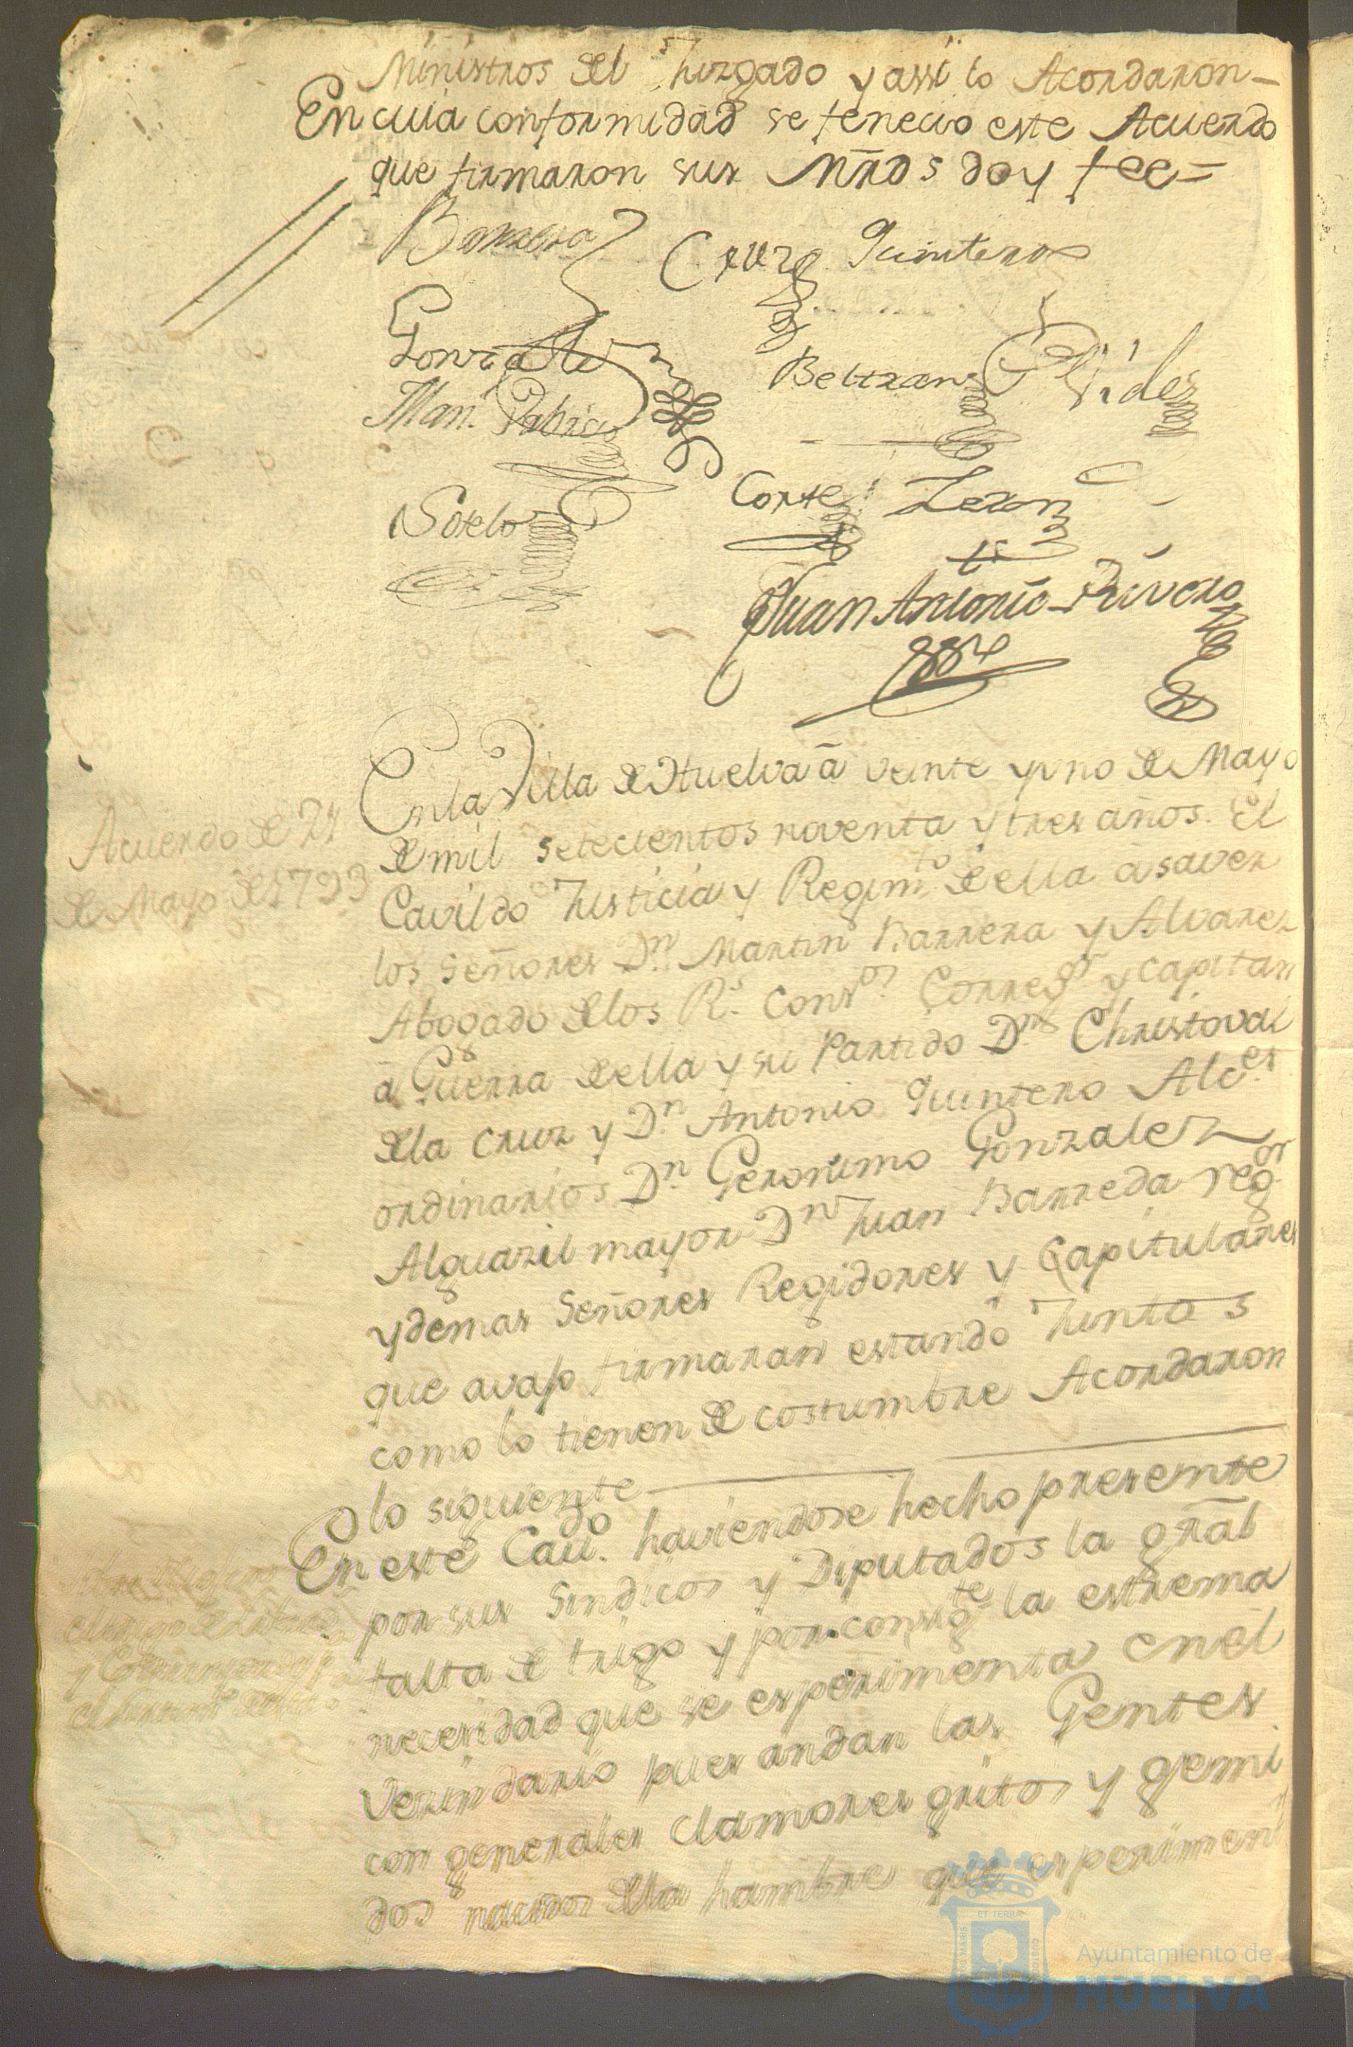 Ministros del Juzgado y assi lo Acordaron–
En cuia conformidad se fenecio este Acuerdo
que firmaron sus Mrds doy fee=
Barrera Cruz Quintero
Gonzalez
Beltran Vides
Man.
Sotelo Corte Leron
Juan Antonio Rivero
En la Villa de Huelva â veinte y uno de Mayo
de mil setecientos noventa y tres años. El
Acuerdo de 21
de Mayo de 1793
Cavildo Justicia y Regimto. de ella â saver
los señores Dn. Martin Barrera y Alvarez
Abogado de los Rs. Consos. Corregor y Capitan
â Guerra de ella y su Partido Dn Christoval
de la Cruz y Dn. Antonio Quintero Alces
ordinarios Dn. Geronimo Gonzalez
Alguazil mayor Dn Juan Barreda regor
y demas Señores Regidores y Capitulares
que avajo firmaran estando Juntos
como lo tienen de costumbre Acordaron
lo siguiente
En este Cavdo. haviendose hecho presente
por sus Sindicos y Diputados la gral
falta de trigo y por consigte la estrema
necesidad que se esperimenta en el
Vecindario pues andan las Gentes
con generales clamores gritos y gemi
dos nacidos de la hambre que esperimen
Ayuntamiento de
HUELVA